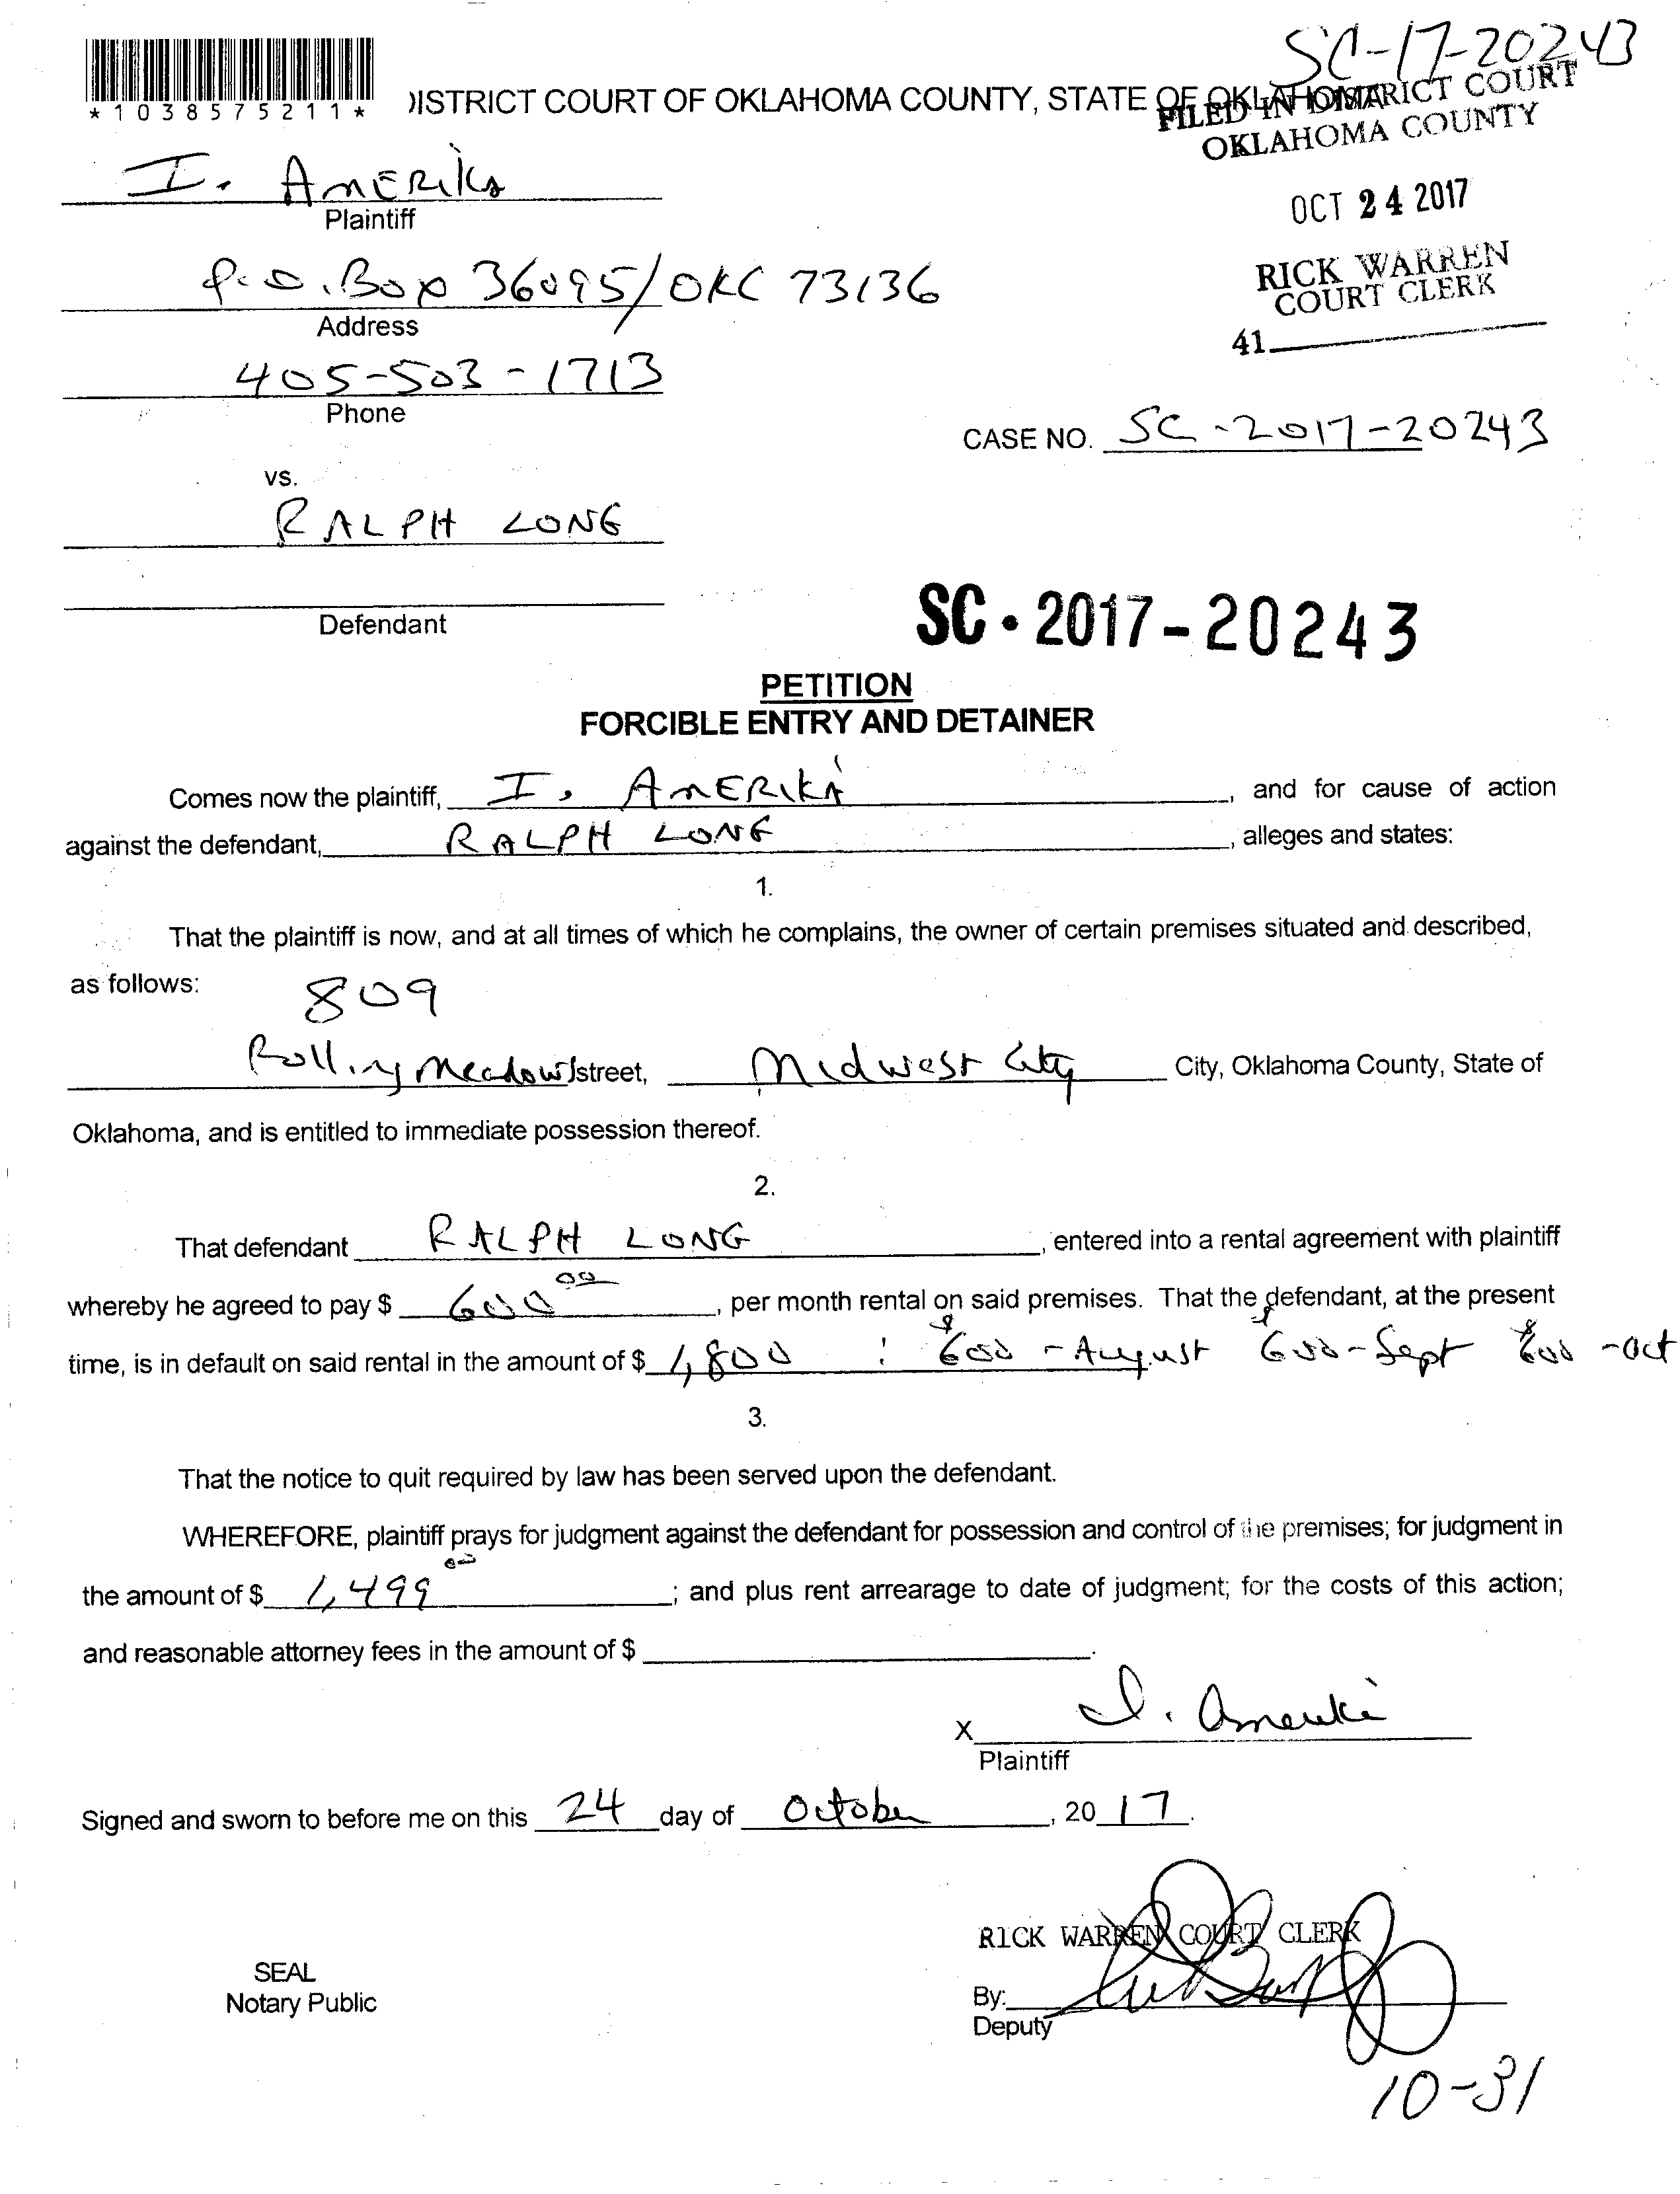 SC-17-20243
*1038575211*
DISTRICT COURT OF OKLAHOMA COUNTY, STATE OF OKLAHOMA
FILED IN DISTRICT COURT
OKLAHOMA COUNTY
OCT 24 2017
RICK WARREN
COURT CLERK
41
I. AMERIKA
Plaintiff
P.O. Box 36095/OKC 73136
Address
405-503-1713
Phone
CASE NO. SC-2017-20243
vs.
RALPH LONG
Defendant
SC-2017-20243
PETITION
FORCIBLE ENTRY AND DETAINER
Comes now the plaintiff, I. AMERIKA, and for cause of action
against the defendant, RALPH LONG, alleges and states:
1.
That the plaintiff is now, and at all times of which he complains, the owner of certain premises situated and described,
as follows: 809
Rolling Meadows street, Midwest City City, Oklahoma County, State of
Oklahoma, and is entitled to immediate possession thereof.
2.
That defendant RALPH LONG, entered into a rental agreement with plaintiff
whereby he agreed to pay $ 600 00, per month rental on said premises. That the defendant, at the present
time, is in default on said rental in the amount of $ 1,800 : $600 - August $600 - Sept $600 - Oct
3.
That the notice to quit required by law has been served upon the defendant.
WHEREFORE, plaintiff prays for judgment against the defendant for possession and control of the premises; for judgment in
the amount of $ 1,499 00; and plus rent arrearage to date of judgment; for the costs of this action;
and reasonable attorney fees in the amount of $.
X I. Amerika
Plaintiff
Signed and sworn to before me on this 24 day of October, 2017.
RICK WARREN COURT CLERK
SEAL
Notary Public
By:
Deputy
10-31